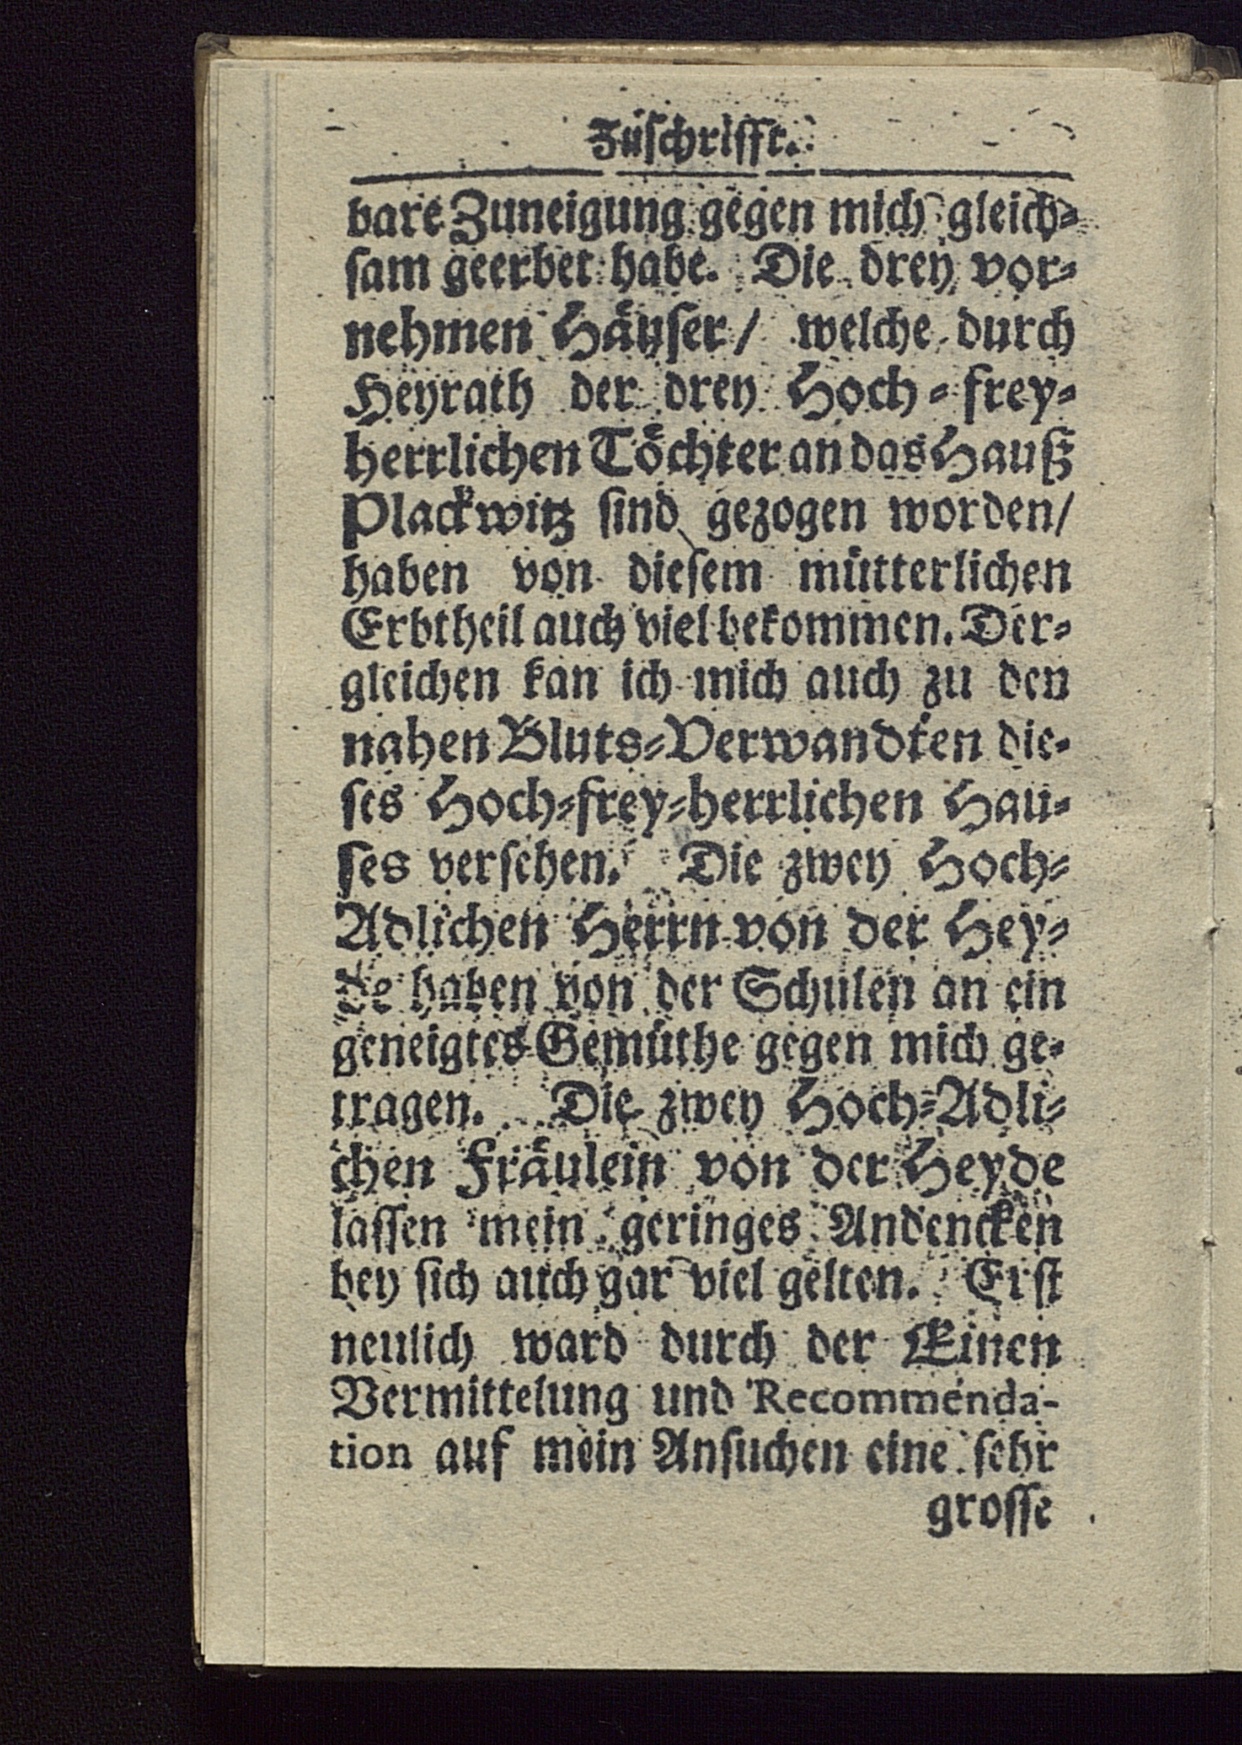 Zuschrifft.
bare Zuneigung gegen mich gleich-
sam geerbet habe. Die drey vor-
nehmen Häuser / welche durch
Heyrath der drey Hoch-frey-
herrlichen Töchter an das Hauß
Plackwitz sind gezogen worden /
haben von diesem mütterlichen
Erbtheil auch viel bekommen. Der-
gleichen kan ich mich auch zu den
nahen Bluts-Verwandten die-
ses Hoch-frey-herrlichen Hau-
ses versehen. Die zwey Hoch-
Adlichen Herrn von der Hey-
de haben von der Schulen an ein
geneigtes Gemüthe gegen mich ge-
tragen. Die zwey Hoch-Adli-
chen Fräulein von der Heyde
lassen mein geringes Andencken
bey sich auch gar viel gelten. Erst
neulich ward durch der Einen
Vermittelung und Recommenda-
tion auf mein Ansuchen eine sehr
grosse